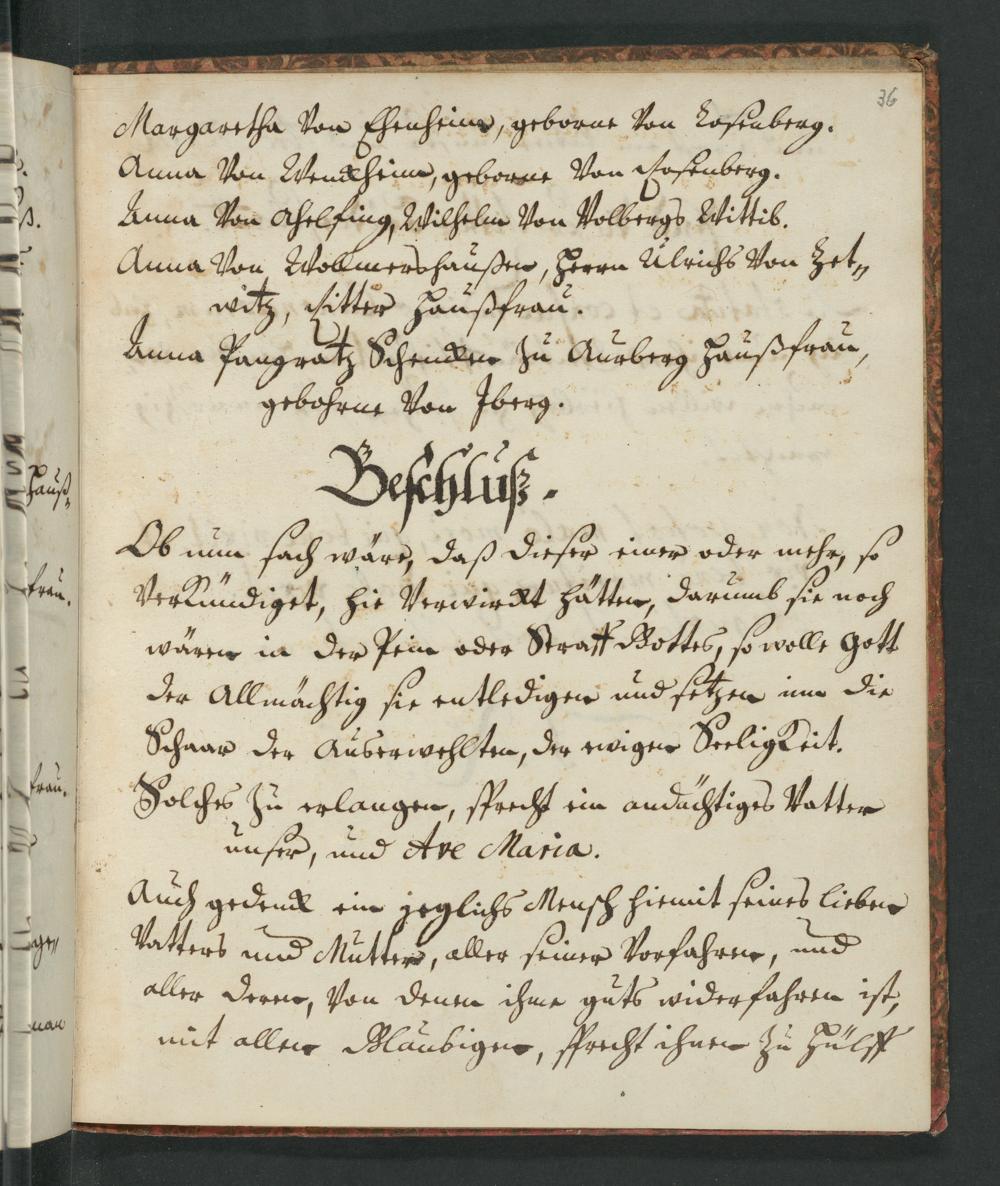 36
Margaretha Von Ehenheim, geborne Von Rosenberg.
Anna Von Wenckheim, geborne Von Rosenberg.
Anna Von Ahelfing, Wilhelm Von Volbergs Wittib.
Anna Von Wollmershaußen, Herrn Ulrichs Von Zet„
witz, Ritter Haußfrau.
Anna Pangratz Schencken zu Aurberg Haußfrau,
gebohrne Von Iberg.
Beschluß.
Ob nun sach wäre, daß dieser einer oder mehr, so
Verkündiget, hie Verwirckt hätten, darumb sie noch
wären in der Pein oder Straff Gottes, so wolle Gott
der Allmächtig sie entledigen und setzen inn die
Schaar der Auserwehlten, der ewigen Seeligkeit.
Solches zu erlangen, sprecht ein andächtiges Vatter
unser, und Ave Maria.
Auch gedenck ein jeglichs Mensch hiemit seines lieben
Vatters und Mutter, aller seiner Vorfahren, und
aller deren, Von denen ihme guts widerfahren ist,
mit allen Gläubigen, sprecht ihnen zu Hülff
Hauß„
frau.
frau.
ge„